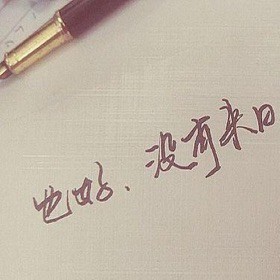 也好、没有来日